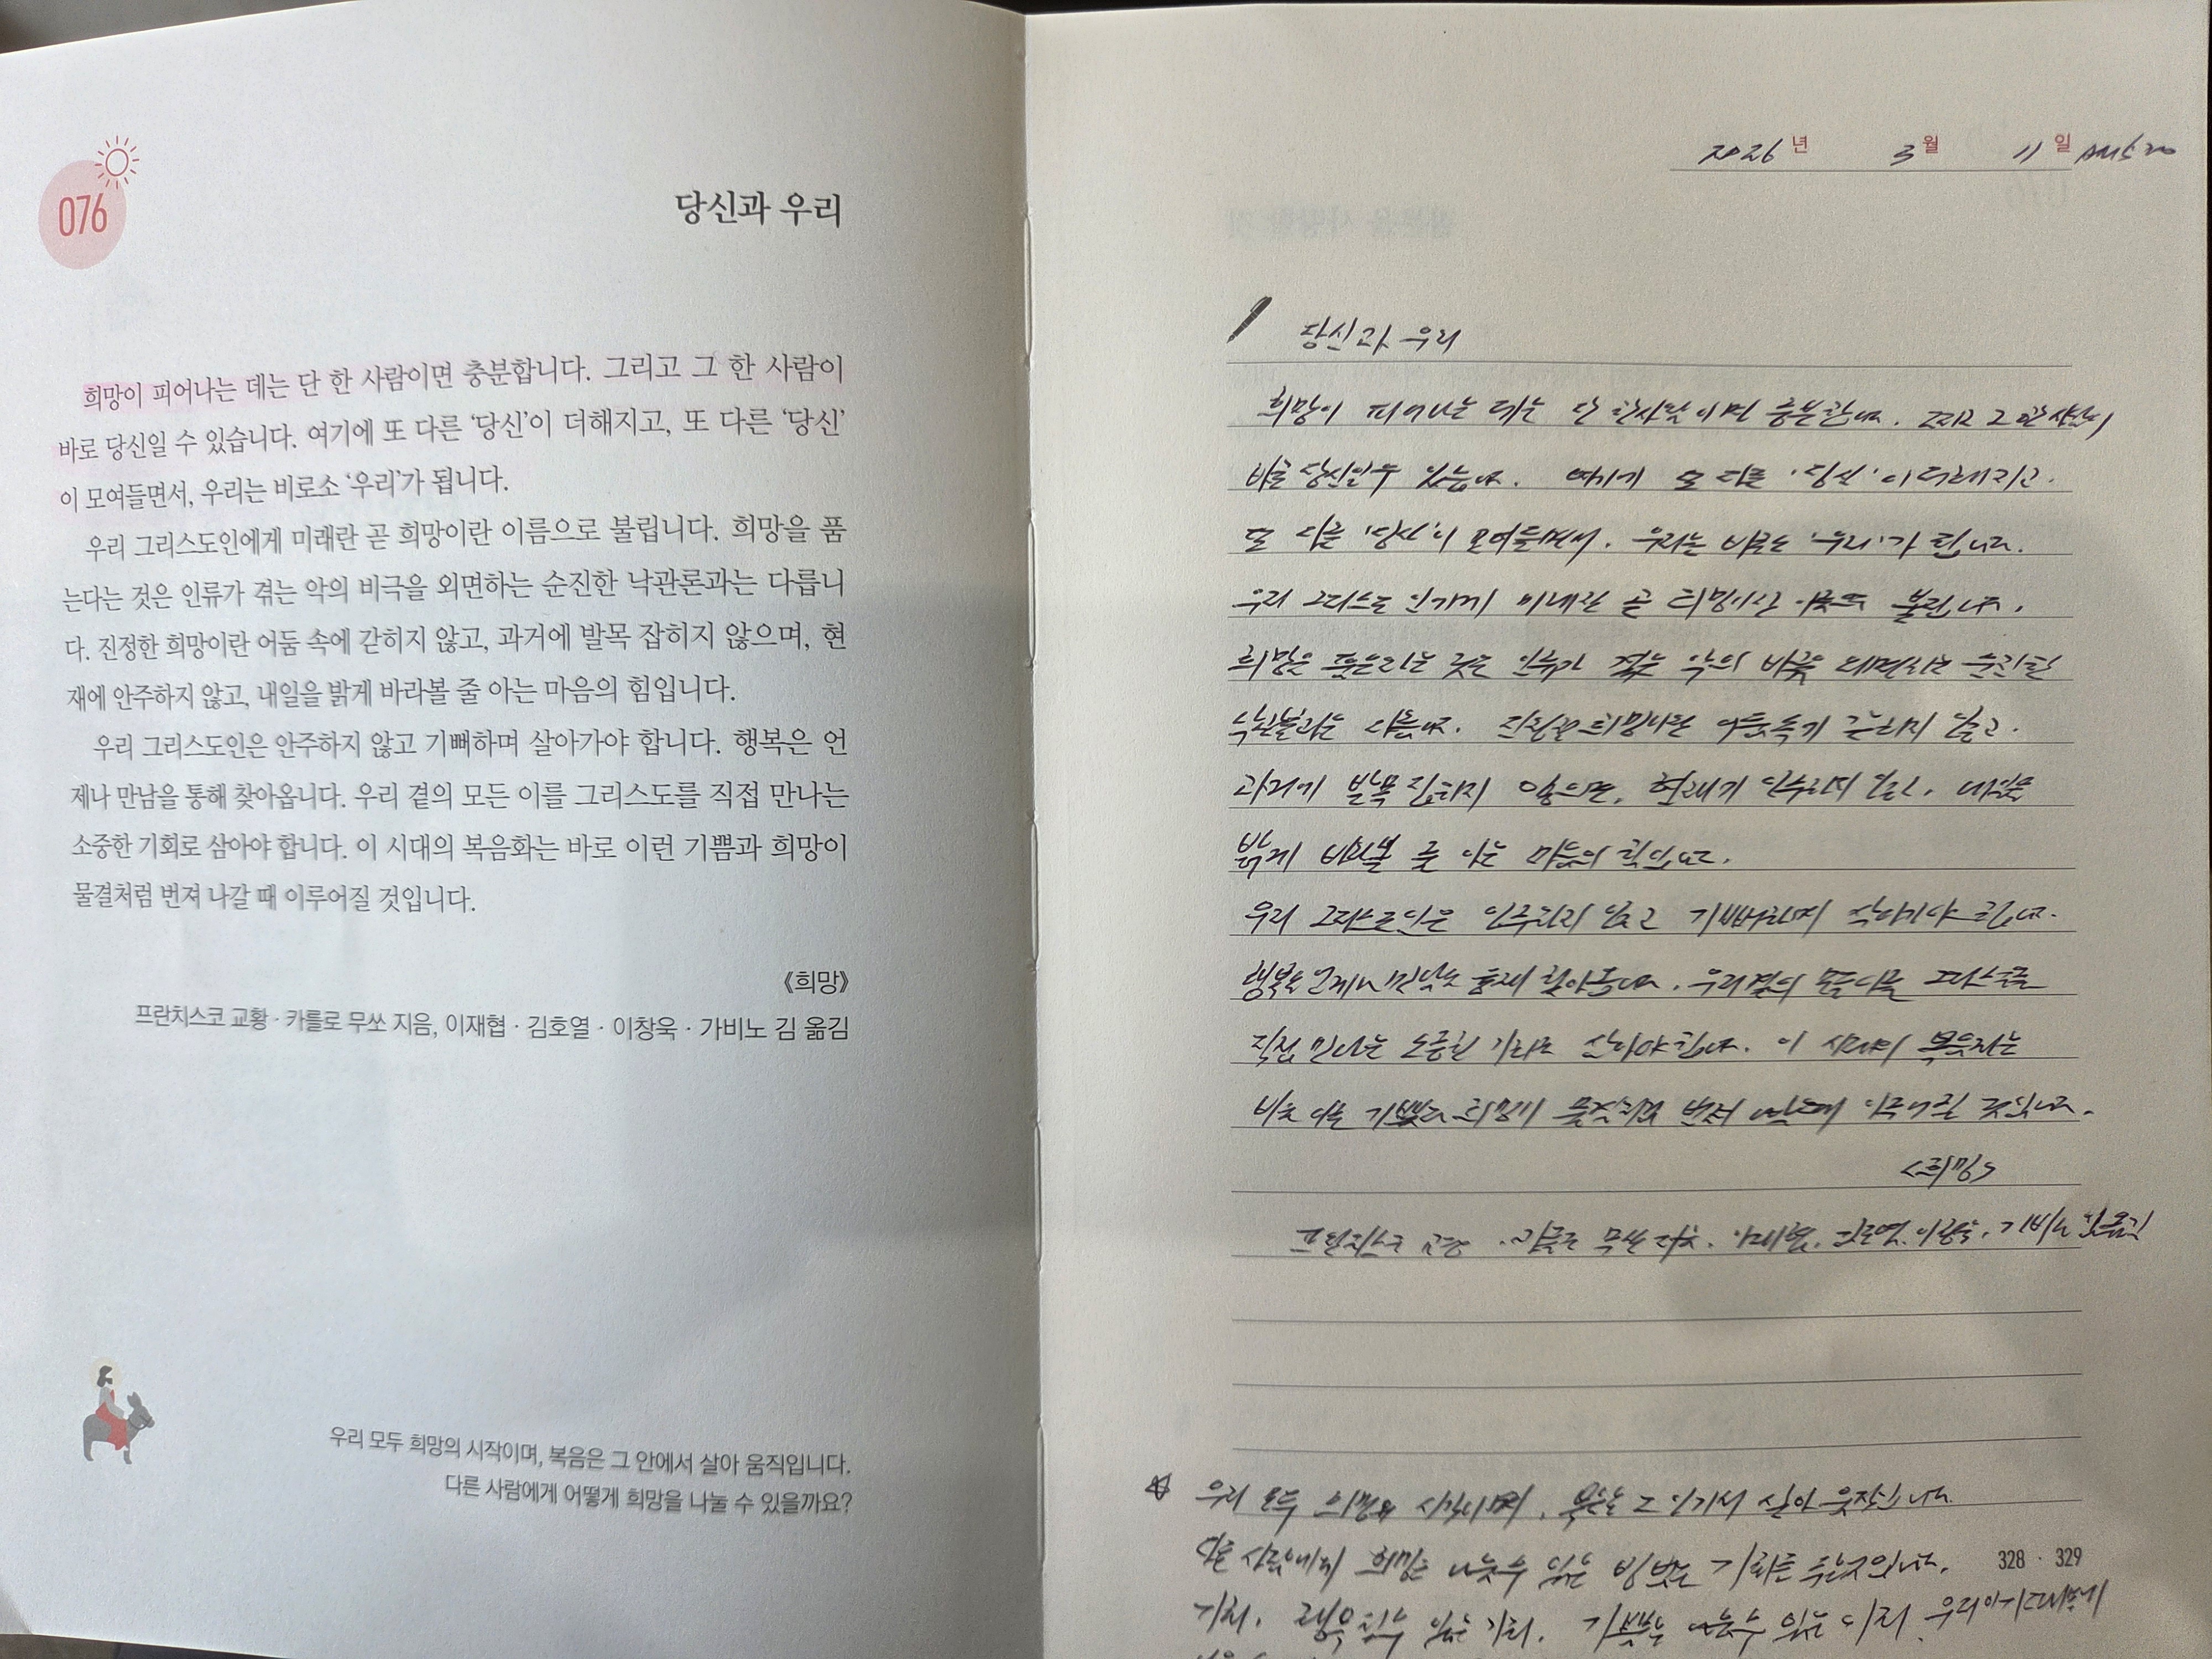 076
당신과 우리
희망이 피어나는 데는 단 한 사람이면 충분합니다. 그리고 그 한 사람이
바로 당신일 수 있습니다. 여기에 또 다른 ‘당신’이 더해지고, 또 다른 ‘당신’
이 모여들면서, 우리는 비로소 ‘우리’가 됩니다.
우리 그리스도인에게 미래란 곧 희망이란 이름으로 불립니다. 희망을 품
는다는 것은 인류가 겪는 악의 비극을 외면하는 순진한 낙관론과는 다릅니
다. 진정한 희망이란 어둠 속에 갇히지 않고, 과거에 발목 잡히지 않으며, 현
재에 안주하지 않고, 내일을 밝게 바라볼 줄 아는 마음의 힘입니다.
우리 그리스도인은 안주하지 않고 기뻐하며 살아가야 합니다. 행복은 언
제나 만남을 통해 찾아옵니다. 우리 곁의 모든 이를 그리스도를 직접 만나는
소중한 기회로 삼아야 합니다. 이 시대의 복음화는 바로 이런 기쁨과 희망이
물결처럼 번져 나갈 때 이루어질 것입니다.
《희망》
프란치스코 교황 · 카를로 무쏘 지음, 이재협 · 김호열 · 이창욱 · 가비노 김 옮김
우리 모두 희망의 시작이며, 복음은 그 안에서 살아 움직입니다.
다른 사람에게 어떻게 희망을 나눌 수 있을까요?
2026년 3월 11일
당신과 우리
희망이 피어나는 데는 단 한사람이면 충분합니다. 그리고 그 한 사람이
바로 당신일 수 있습니다. 여기에 또 다른 '당신'이 더해지고.
또 다른 '당신'이 모여들면서. 우리는 비로소 '우리'가 됩니다.
우리 그리스도인에게 미래란 곧 희망이란 이름으로 불립니다.
희망을 품는다는 것은 인류가 겪는 악의 비극을 외면하는 순진한
낙관론과는 다릅니다. 진정한 희망이란 어둠속에 갇히지 않고.
과거에 발목 잡히지 않으며, 현재에 안주하지 않고, 내일을
밝게 바라볼 줄 아는 마음의 힘입니다.
우리 그리스도인은 안주하지 않고 기뻐하며 살아가야 합니다.
행복은 언제나 만남을 통해 찾아옵니다. 우리 곁의 모든 이를 그리스도를
직접 만나는 소중한 기회로 삼아야 합니다. 이 시대의 복음화는
바로 이런 기쁨과 희망이 물결처럼 번져 나갈 때 이루어질 것입니다.
<희망>
프란치스코 교황 · 카를로 무쏘 지음. 이재협. 김호열. 이창욱. 가비노 김 옮김
우리 모두 희망의 시작이며, 복음은 그 안에서 살아 움직입니다.
다른 사람에게 희망을 나눌수 있는 방법은 기회를 주는것입니다.
기회. 수 있는 기회. 기쁨을 나눌수 있는 기회
328 · 329